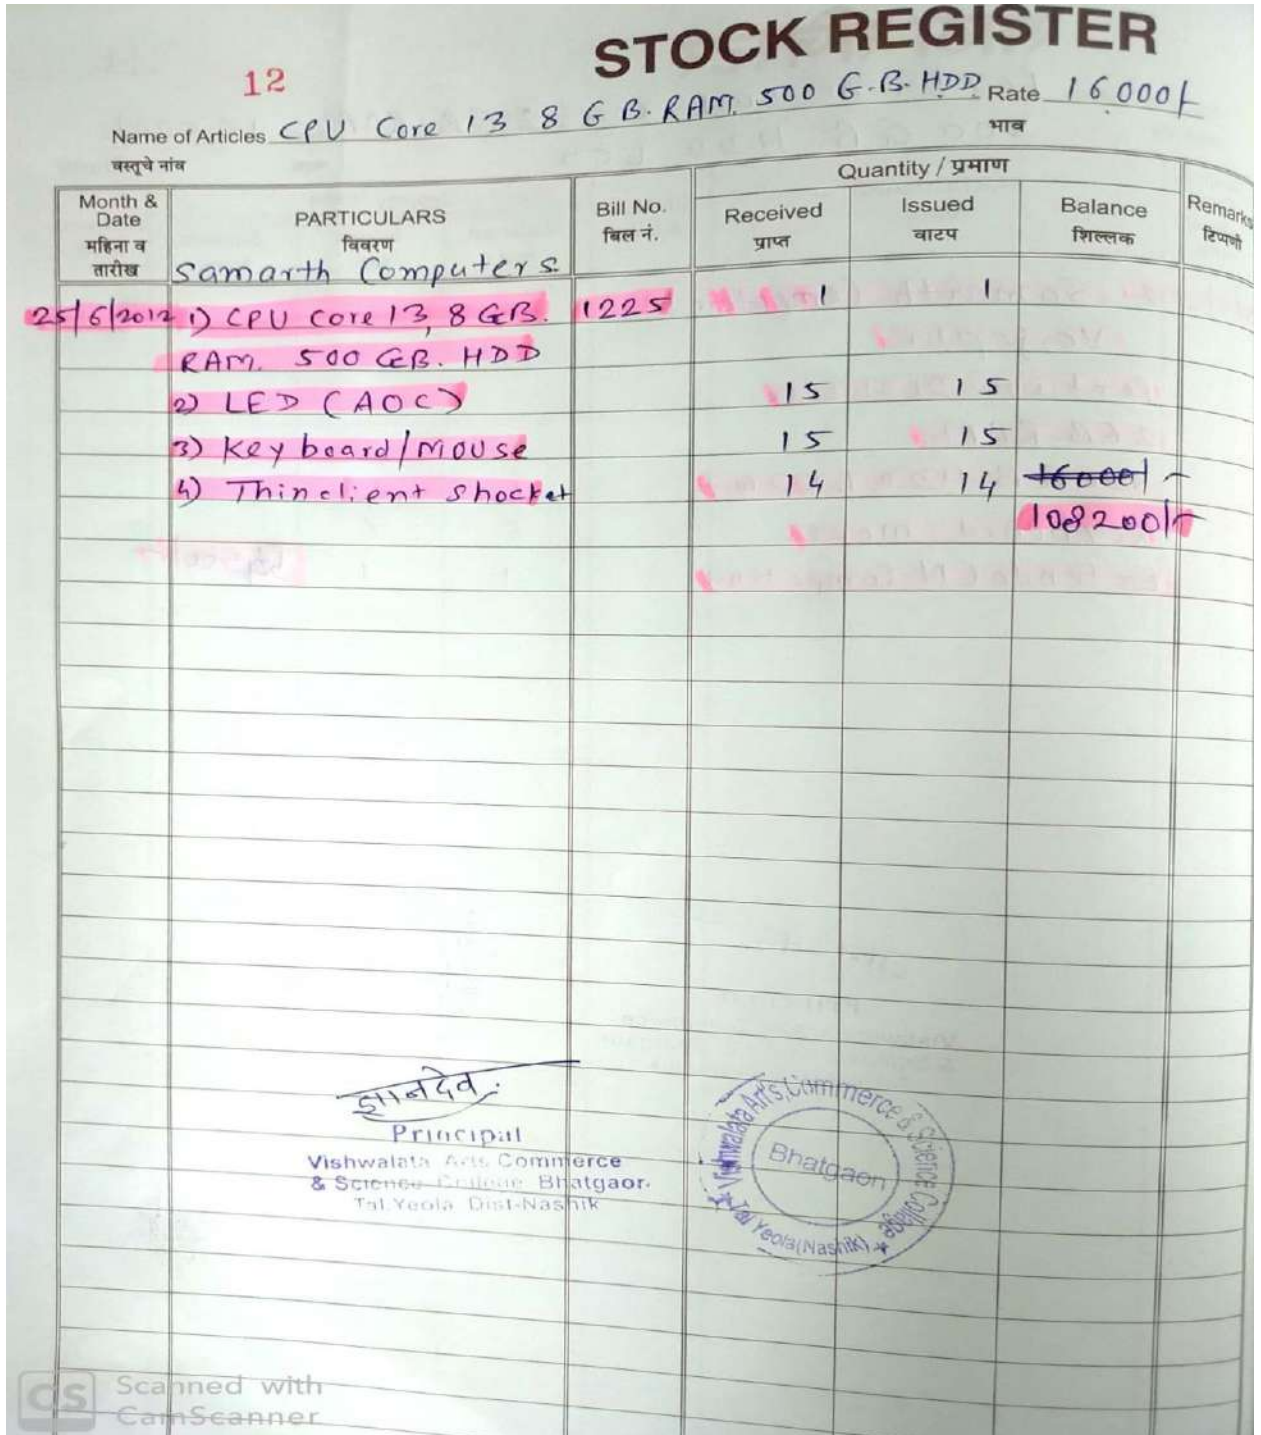 STOCK REGISTER
12
Name of Articles CPU Core 13 8 GB. RAM. 500 G.B. HDD Rate 16000/-
वस्तूचे नांव भाव
Month & Date महिना व तारीख PARTICULARS विवरण Bill No. बिल नं. Quantity / प्रमाण Remarks टिप्पणी
Received प्राप्त Issued वाटप Balance शिल्लक
Samarth Computers
25/6/2012 1) CPU Core 13, 8 GB. 1225 1 1
RAM. 500 GB. HDD
2) LED (AOC) 15 15
3) Key board/Mouse 15 15
4) Thinclient Shocket 14 14 16000/-
108200/-
ज्ञानदेव
Principal
Vishwalata Arts Commerce
& Science College Bhatgaon.
Tal.Yeola Dist-Nashik
Vishwalata Art's, Commerce & Science College
Bhatgaon
Tal Yeola (Nashik)
CS Scanned with
CamScanner